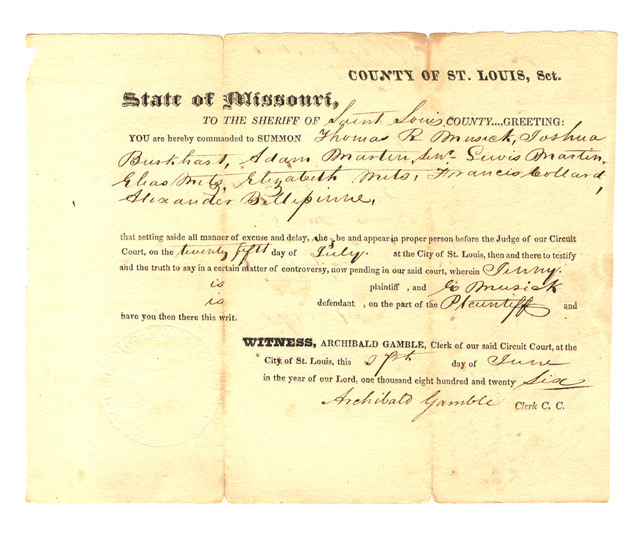 COUNTY OF ST. LOUIS, Sct.
State of Missouri,
TO THE SHERIFF OF Saint Louis COUNTY....GREETING:
YOU are hereby commanded to SUMMON Thomas R Musick, Joshua
Burkhart, Adam Martin, Senr. Lewis Martin,
Elias Metz, Elizabeth Metz, Francis Collard,
Alexander Bellepinne,
that setting aside all manner of excuse and delay, he be and appear in proper person before the Judge of our Circuit
Court, on the twenty fifth day of July. at the City of St. Louis, then and there to testify
and the truth to say in a certain matter of controversy, now pending in our said court, wherein Jenny.
is plaintiff , and E Musick
is defendant , on the part of the Plaintiff and
have you then there this writ.
WITNESS, ARCHIBALD GAMBLE, Clerk of our said Circuit Court, at the
City of St. Louis, this day of June
in the year of our Lord, one thousand eight hundred and twenty Six
Archibald Gamble Clerk C. C.